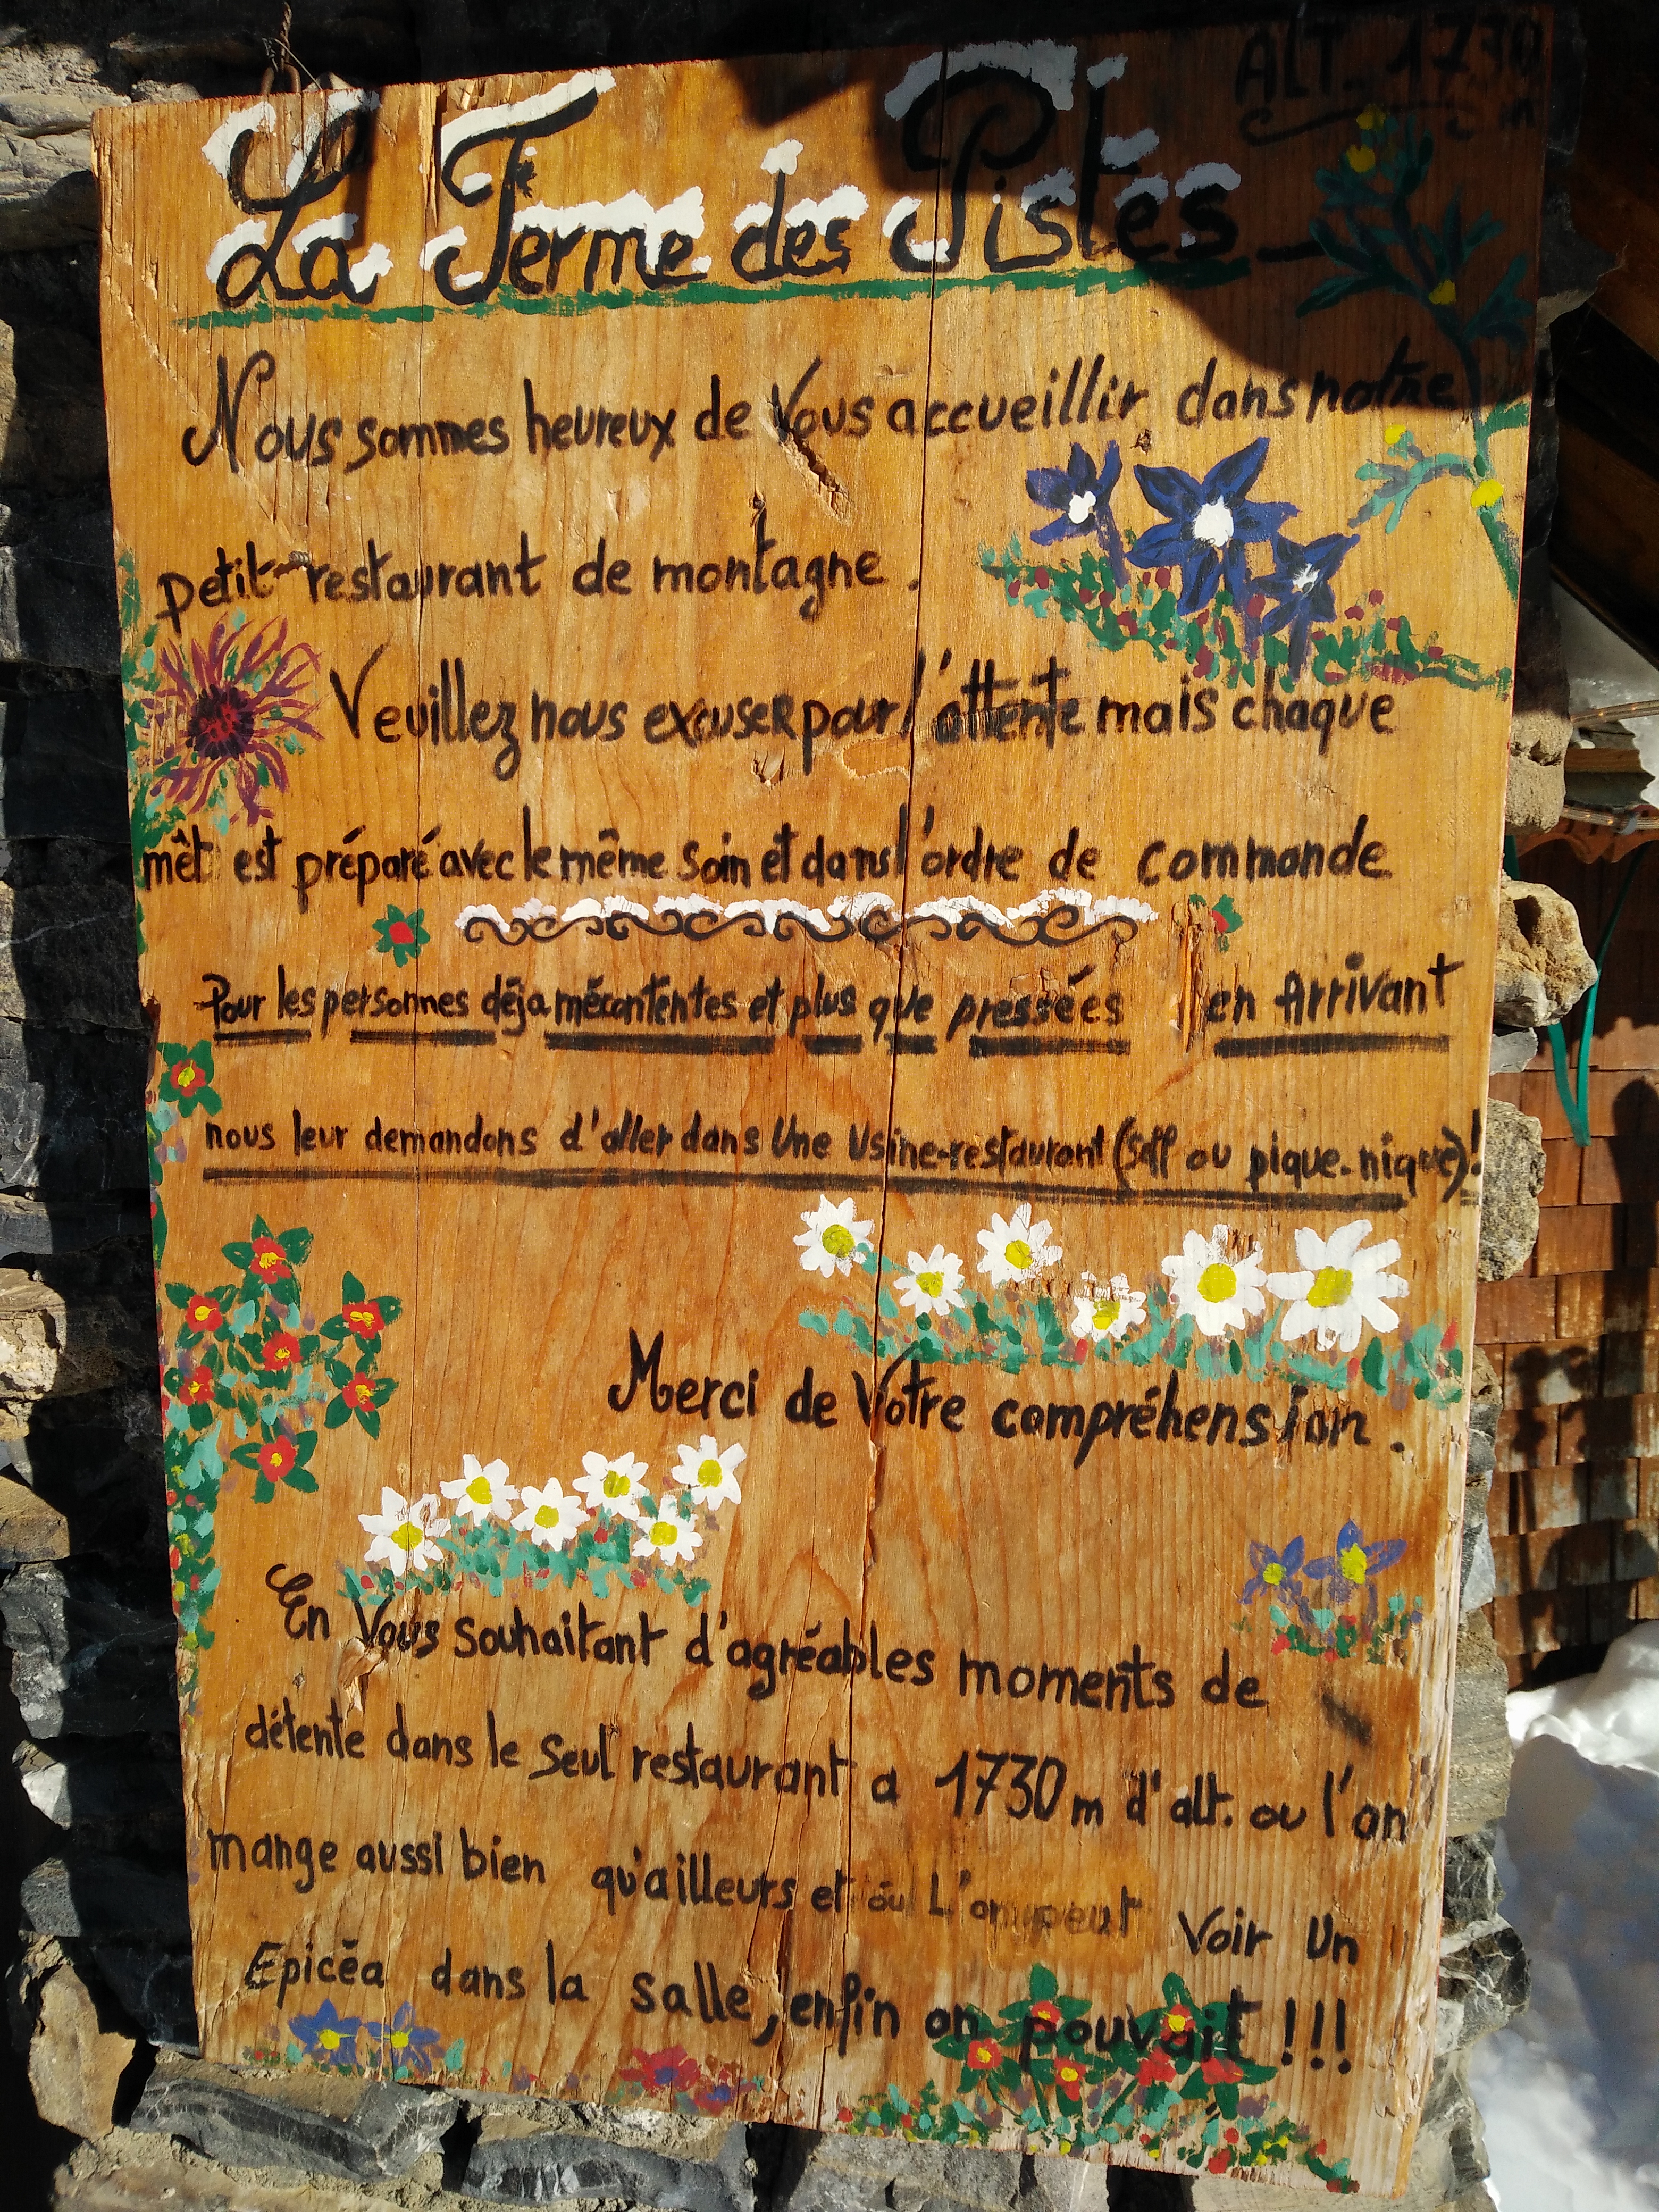 ALT. 1730 m
La Ferme des Pistes
Nous sommes heureux de Vous accueillir dans notre
petit restaurant de montagne.
Veuillez nous excuser pour l'attente mais chaque
mêt est préparé avec le même soin et dans l'ordre de commande
Pour les personnes déja mécontentes et plus que pressées en Arrivant
nous leur demandons d'aller dans Une Usine-restaurant (Self ou pique-nique)!
Merci de Votre compréhension.
En Vous souhaitant d'agréables moments de
détente dans le Seul restaurant a 1730m d'alt. ou l'on
mange aussi bien qu'ailleurs et où L'on peut Voir Un
Epicéa dans la salle, enfin on pouvait !!!